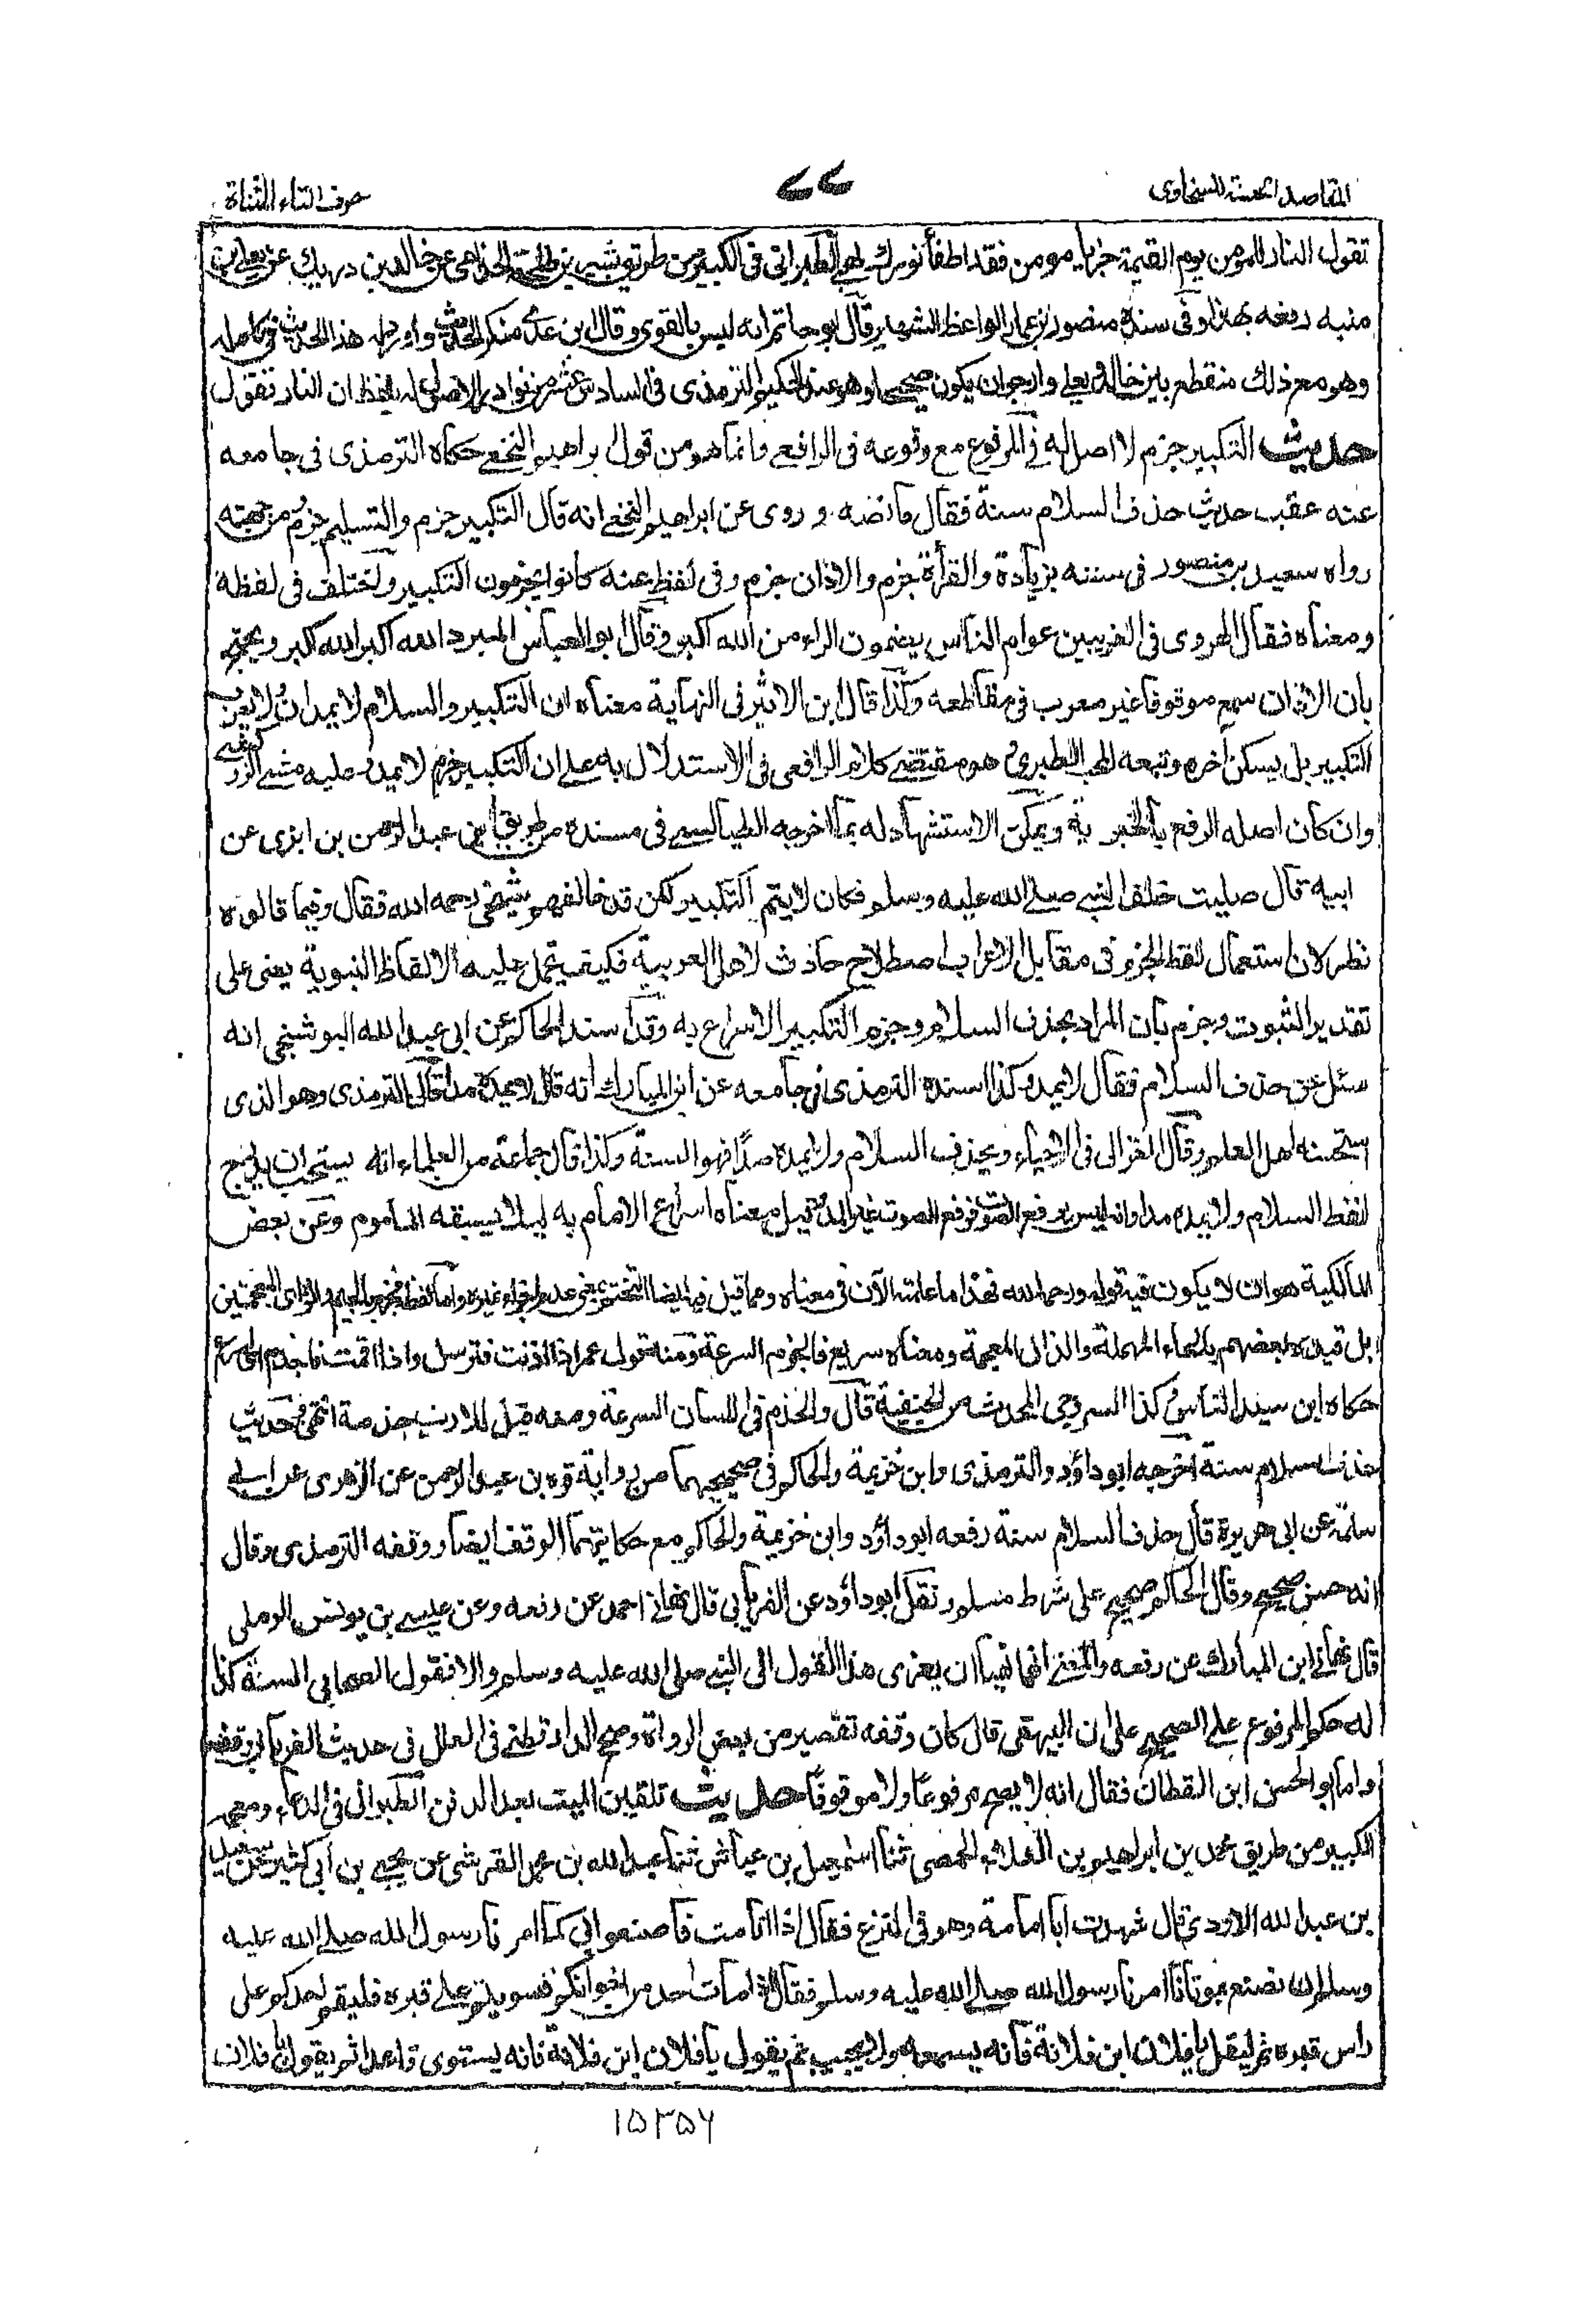 المقاصد الحسنة للسخاوى
٧٧
حرف التاء المثناة
تقول النار للمؤمن يوم القيمة جز يا مومن فقد اطفأ نورك لهبى الطبرانى فى الكبير من طريق بشير بن طلحة الجذامى عن خالد بن دريك عن يعلى بن
منبه رفعه بهذا وفى سنده منصور بن عمار الواعظ الشهير قال ابو حاتم انه ليس بالقوى وقال ابن عدى منكر الحديث واورد له هذا الحديث فى كامله
وهو مع ذلك منقطع بين خالد ويعلى وارجو ان يكون صحيحا وهو عند الحكيم الترمذى فى السادس عشر من نوادر الاصول له بلفظ ان النار تقول
حديث التكبير جزم لا اصل له فى المرفوع مع وقوعه فى الرافعى وانما هو من قول ابراهيم النخعى حكاه الترمذى فى جامعه
عنه عقب حديث حذف السلام سنة فقال ما نصه و روى عن ابراهيم النخعى انه قال التكبير جزم والتسليم جزم من جهته
رواه سعيد بن منصور فى سننه بزيادة والقرأة جزم والاذان جزم وفى لفظ عنه كانوا يجزمون التكبير واختلف فى لفظه
ومعناه فقال الهروى فى الغريبين عوام الناس يضمون الراء من الله اكبر وقال ابو العباس المبرد الله اكبر الله اكبر ويحتج
بان الاذان سمع موقوفا غير معرب فى مقاطعه وكذا قال ابن الاثير فى النهاية معناه ان التكبير والسلام لا يمدان ولا يعرب
التكبير بل يسكن آخره وتبعه المحب الطبرى وهو مقتضى كلام الرافعى فى الاستدلال به على ان التكبير جزم لا يمد وعليه مشى الزركشى
وان كان اصله الرفع بالخبرية ويمكن الاستشهاد له بما اخرجه الطيالسى فى مسنده من طريق ابن عبد الرحمن بن ابزى عن
ابيه قال صليت خلف النبى صلى الله عليه وسلم فكان لا يتم التكبير لكن قد خالفهم شيخى رحمه الله فقال وفيما قالوه
نظر لان استعمال لفظ الجزم فى مقابل الاعراب اصطلاح حادث لاهل العربية فكيف يحمل عليه الالفاظ النبوية يعنى على
تقدير الثبوت وجزم بان المراد بحذف السلام وجزم التكبير الاسراع به وقد اسند الحاكم عن ابى عبد الله البوشنجى انه
سئل عن حذف السلام فقال لا يمد وكذا اسنده الترمذى فى جامعه عن ابن المبارك انه قال لا يمده مدا قال الترمذى وهو الذى
استحبه اهل العلم وقال الغزالى فى الاحياء ويحذف السلام ولا يمده مدًا فهو السنة وكذا قال جماعة من العلماء انه يستحب ان يدرج
لفظ السلام ولا يمده مدا وانه ليس برفع الصوت فرفع الصوت غير المد وقيل معناه اسراع الامام به ليلا يسبقه الماموم وعن بعض
المالكية هو ان لا يكون فيه قوله ورحمة الله فهذا ما علمته الآن فى معناه ومما قيل فيه ايضا لتحتم بمعنى عدم اجزاء غيره واما لفظ فجزم بالجيم والزاى المعجمتين
بل قيده بعضهم بالحاء المهملة والذال المعجمة ومعناه سريع فالحذم السرعة ومنه قول عمر اذا اذنت فترسل واذا اقمت فاحذم اى اسرع
حكاه ابن سيد الناس وكذا السروجى المحدث من الحنفية قال والحذم فى اللسان السرعة ومنه قيل للارنب حذمة انتهى وحديث
حذف السلام سنة اخرجه ابو داؤد والترمذى وابن خزيمة والحاكم فى صحيحيهما من رواية قره بن عبد الرحمن عن الزهرى عن ابى
سلمة عن ابى هريرة قال حذف السلام سنة رفعه ابو داؤد وابن خزيمة والحاكم مع حكايتهما الوقف ايضا ووقفه الترمذى وقال
انه حسن صحيح وقال الحاكم صحيح على شرط مسلم ونقل ابو داؤد عن الفريابى قال نهانى احمد عن رفعه وعن عيسى بن يونس الرملى
قال نهانى ابن المبارك عن رفعه والمعنى انهما نهيا ان يعزى هذا القول الى النبى صلى الله عليه وسلم والا فقول الصحابى السنة كذا
له حكم المرفوع على الصحيح على ان البيهقى قال كان وقفه تقصير من بعض الرواة وصحح الدارقطنى فى العلل فى حديث الفريابى وقفه
واما ابو الحسن ابن القطان فقال انه لا يصح مرفوعا ولا موقوفا حديث تلقين الميت بعد الدفن الطبرانى فى الدعاء ومعجمه
الكبير من طريق محمد بن ابراهيم بن العلاء الحمصى ثنا اسمعيل بن عياش ثنا عبد الله بن محمد القرشى عن يحيى بن أبى كثير عن سعيد
بن عبد الله الاودى قال شهدت ابا امامة وهو فى النزع فقال اذا انا مت فاصنعوا بى كما امرنا رسول الله صلى الله عليه
وسلم ان نصنع بموتانا امرنا رسول الله صلى الله عليه وسلم فقال اذا مات احد من اخوانكم فسويتم على قبره فليقم احدكم على
راس قبره ثم ليقل يا فلان ابن فلانة فانه يسمعه ولا يجيب ثم يقول يا فلان ابن فلانة فانه يستوى قاعدا ثم يقول يا فلان
١٥٣٥٧